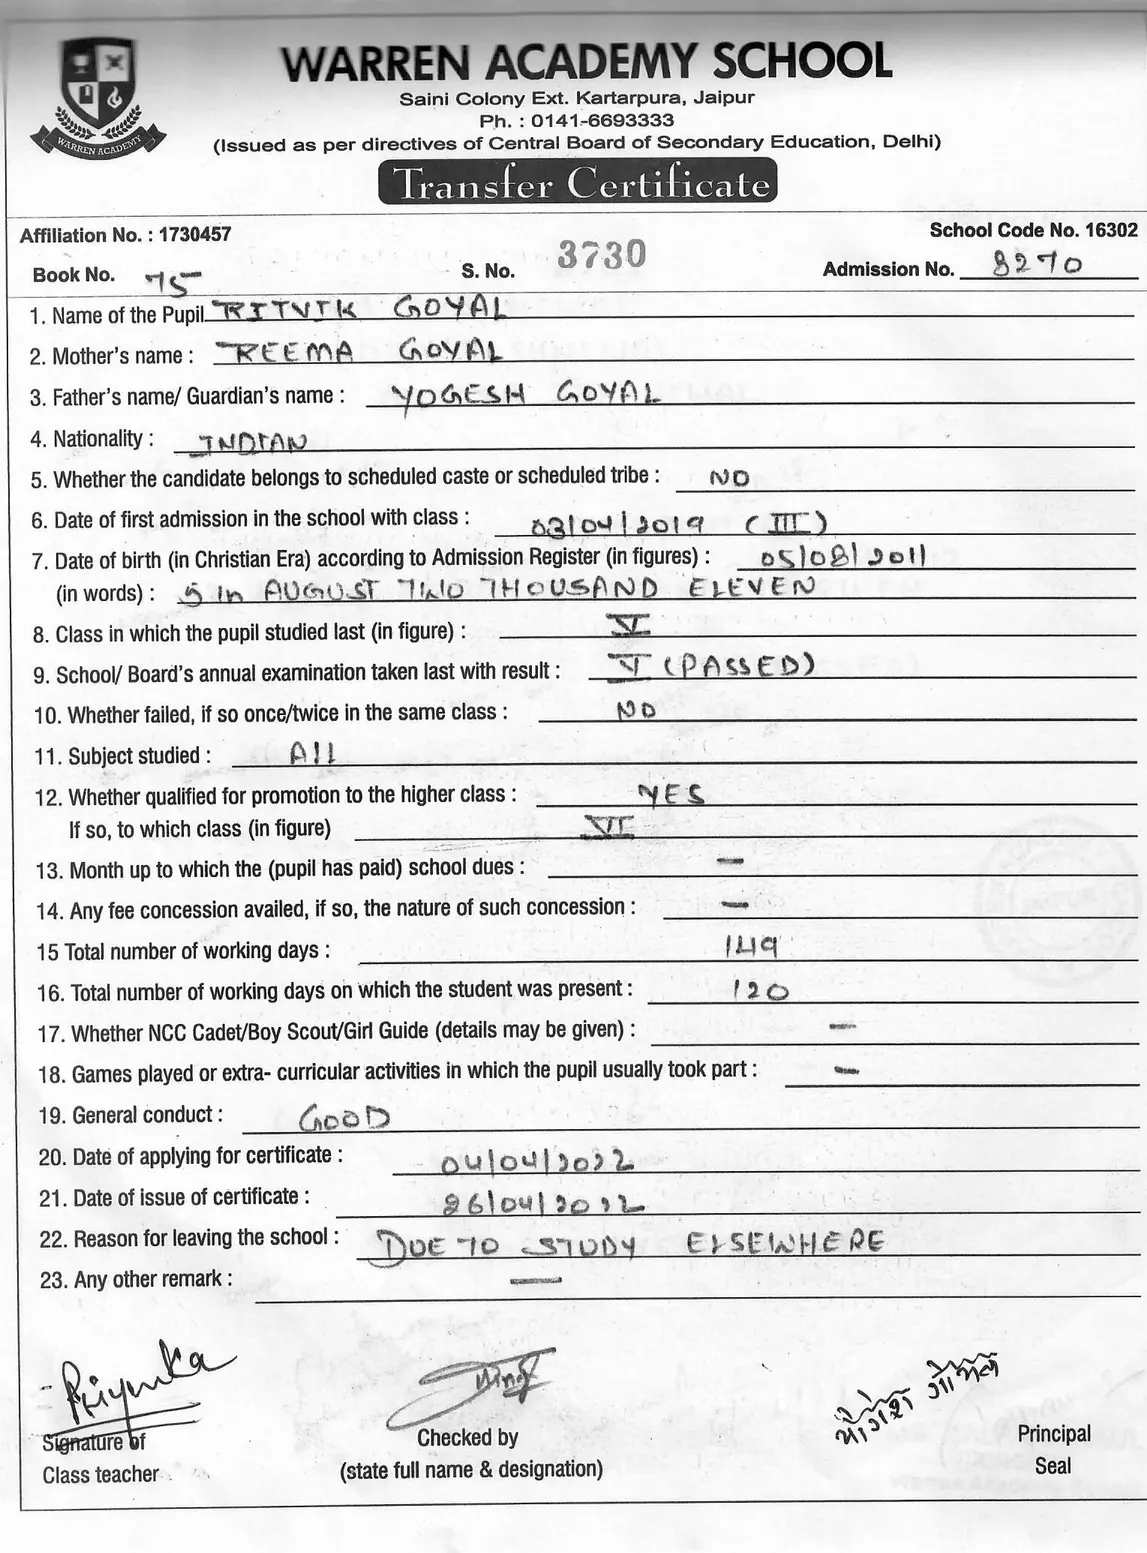 WARREN ACADEMY SCHOOL
Saini Colony Ext. Kartarpura, Jaipur
Ph. : 0141-6693333
(Issued as per directives of Central Board of Secondary Education, Delhi)
WARREN ACADEMY
Transfer Certificate
Affiliation No. : 1730457 School Code No. 16302
Book No. 75 S. No. 3730 Admission No. 8270
1. Name of the Pupil RITVIK GOYAL
2. Mother's name : REEMA GOYAL
3. Father's name/ Guardian's name : YOGESH GOYAL
4. Nationality : INDIAN
5. Whether the candidate belongs to scheduled caste or scheduled tribe : NO
6. Date of first admission in the school with class : 03/04/2019 (III)
7. Date of birth (in Christian Era) according to Admission Register (in figures) : 05/08/2011
(in words) : AUGUST TWO THOUSAND ELEVEN
8. Class in which the pupil studied last (in figure) : V
9. School/ Board's annual examination taken last with result : V (PASSED)
10. Whether failed, if so once/twice in the same class : NO
11. Subject studied : All
12. Whether qualified for promotion to the higher class : YES
If so, to which class (in figure) VI
13. Month up to which the (pupil has paid) school dues : —
14. Any fee concession availed, if so, the nature of such concession : —
15 Total number of working days : 149
16. Total number of working days on which the student was present : 120
17. Whether NCC Cadet/Boy Scout/Girl Guide (details may be given) : —
18. Games played or extra- curricular activities in which the pupil usually took part : —
19. General conduct : GOOD
20. Date of applying for certificate : 04/04/2022
21. Date of issue of certificate : 26/04/2022
22. Reason for leaving the school : DUE TO STUDY ELSEWHERE
23. Any other remark : —
Priyanka
Signature of Checked by Principal
Class teacher (state full name & designation) Seal